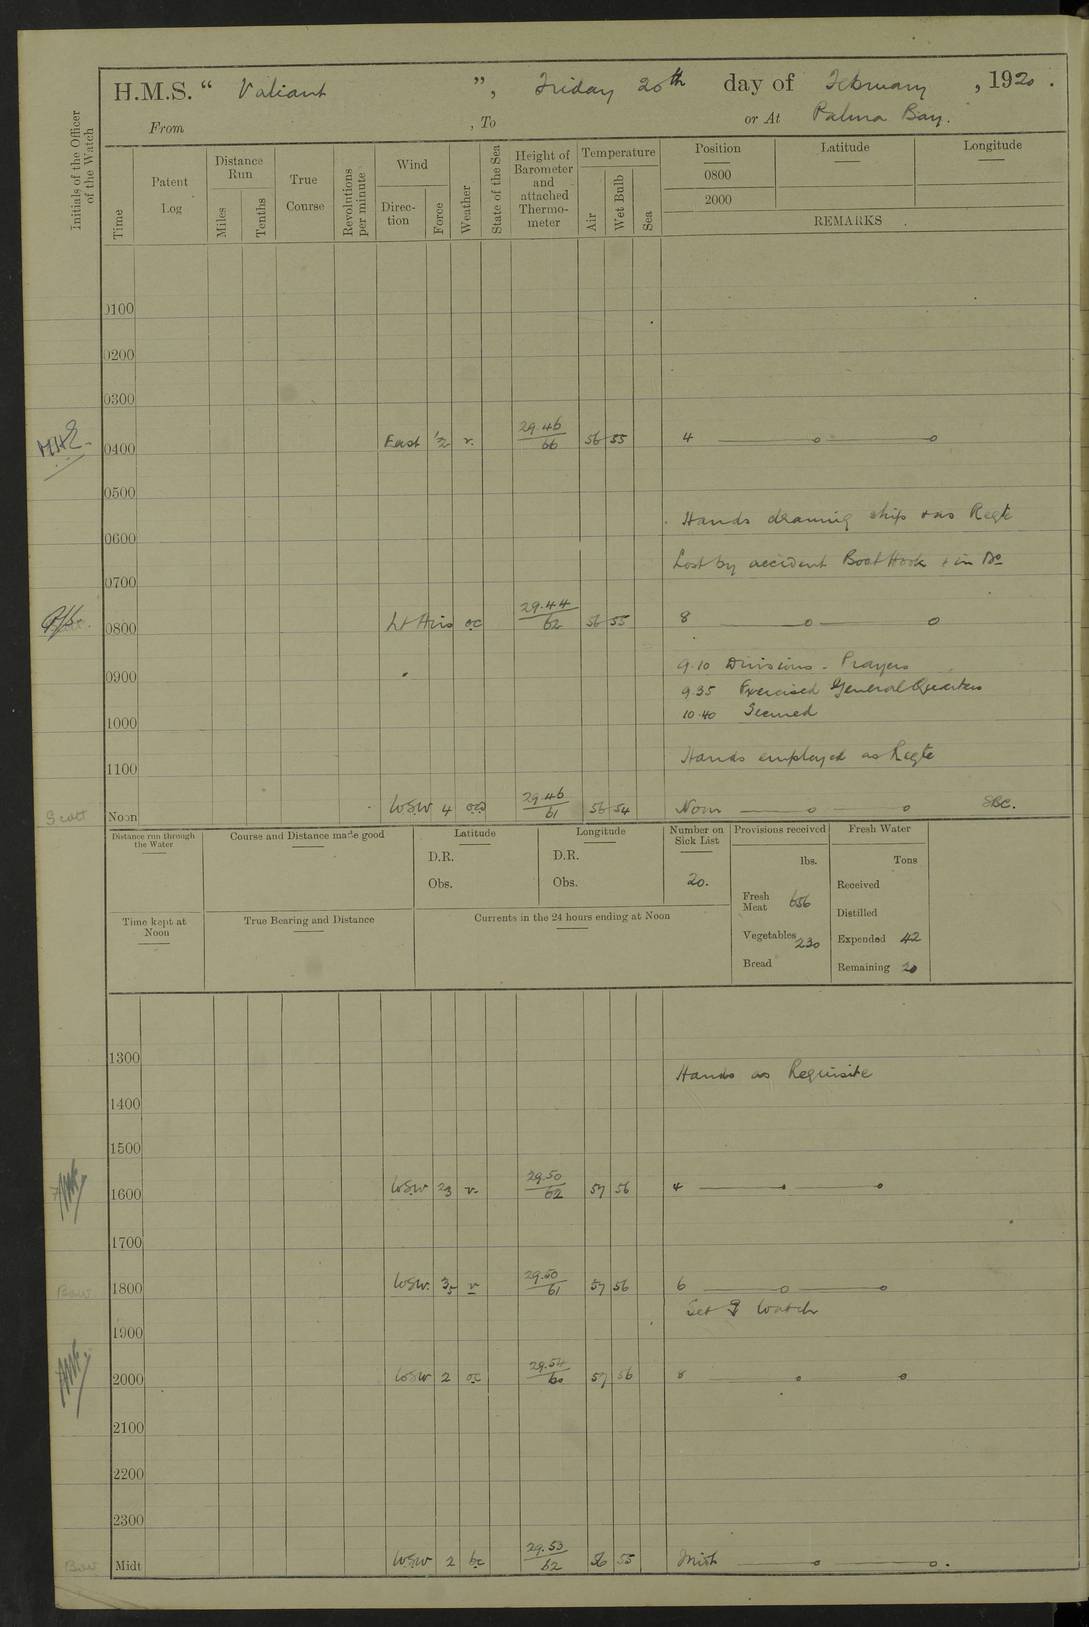 H.M.S. “ Valiant ”, Friday 20th day of February , 1920 .
From , To or At Palma Bay.
Initials of the Officer of the Watch
Time
Patent Log
Distance Run
Miles
Tenths
True Course
Revolutions per minute
Wind
Direc-tion
Force
Weather
State of the Sea
Height of Barometer and attached Thermo-meter
Temperature
Air
Wet Bulb
Sea
Position
Latitude
Longitude
0800
2000
REMARKS
0100
0200
0300
0400 East ½ r. 29.46/66 56 55 4
0500
Hands cleaning ship & as Reqte
0600
Lost by accident Boat Hook 1 in No
0700
0800 Lt Airs oc 29.44/62 56 55 8
0900 9.10 Divisions - Prayers
9.35 Exercised General Quarters
1000 10.40 Secured
1100 Hands employed as Reqte
Scott Noon WSW 4 29.46/61 56 54 Noon
Distance run through the Water
Course and Distance made good
Latitude
D.R.
Obs.
Longitude
D.R.
Obs.
Number on Sick List
20.
Provisions received
lbs.
Fresh Meat 656
Vegetables 230
Bread
Fresh Water
Tons
Received
Distilled
Expended 42
Remaining 20
Time kept at Noon
True Bearing and Distance
Currents in the 24 hours ending at Noon
1300
Hands as Requisite
1400
1500
1600 WSW 23 r 29.50/62 57 56 4
1700
1800 WSW. r 29.50/61 57 56 6
Set Watch
1900
2000 WSW 2 oc 29.54/60 57 56 8
2100
2200
2300
Midt WSW 2 bc 29.53/62 56 55 Midt